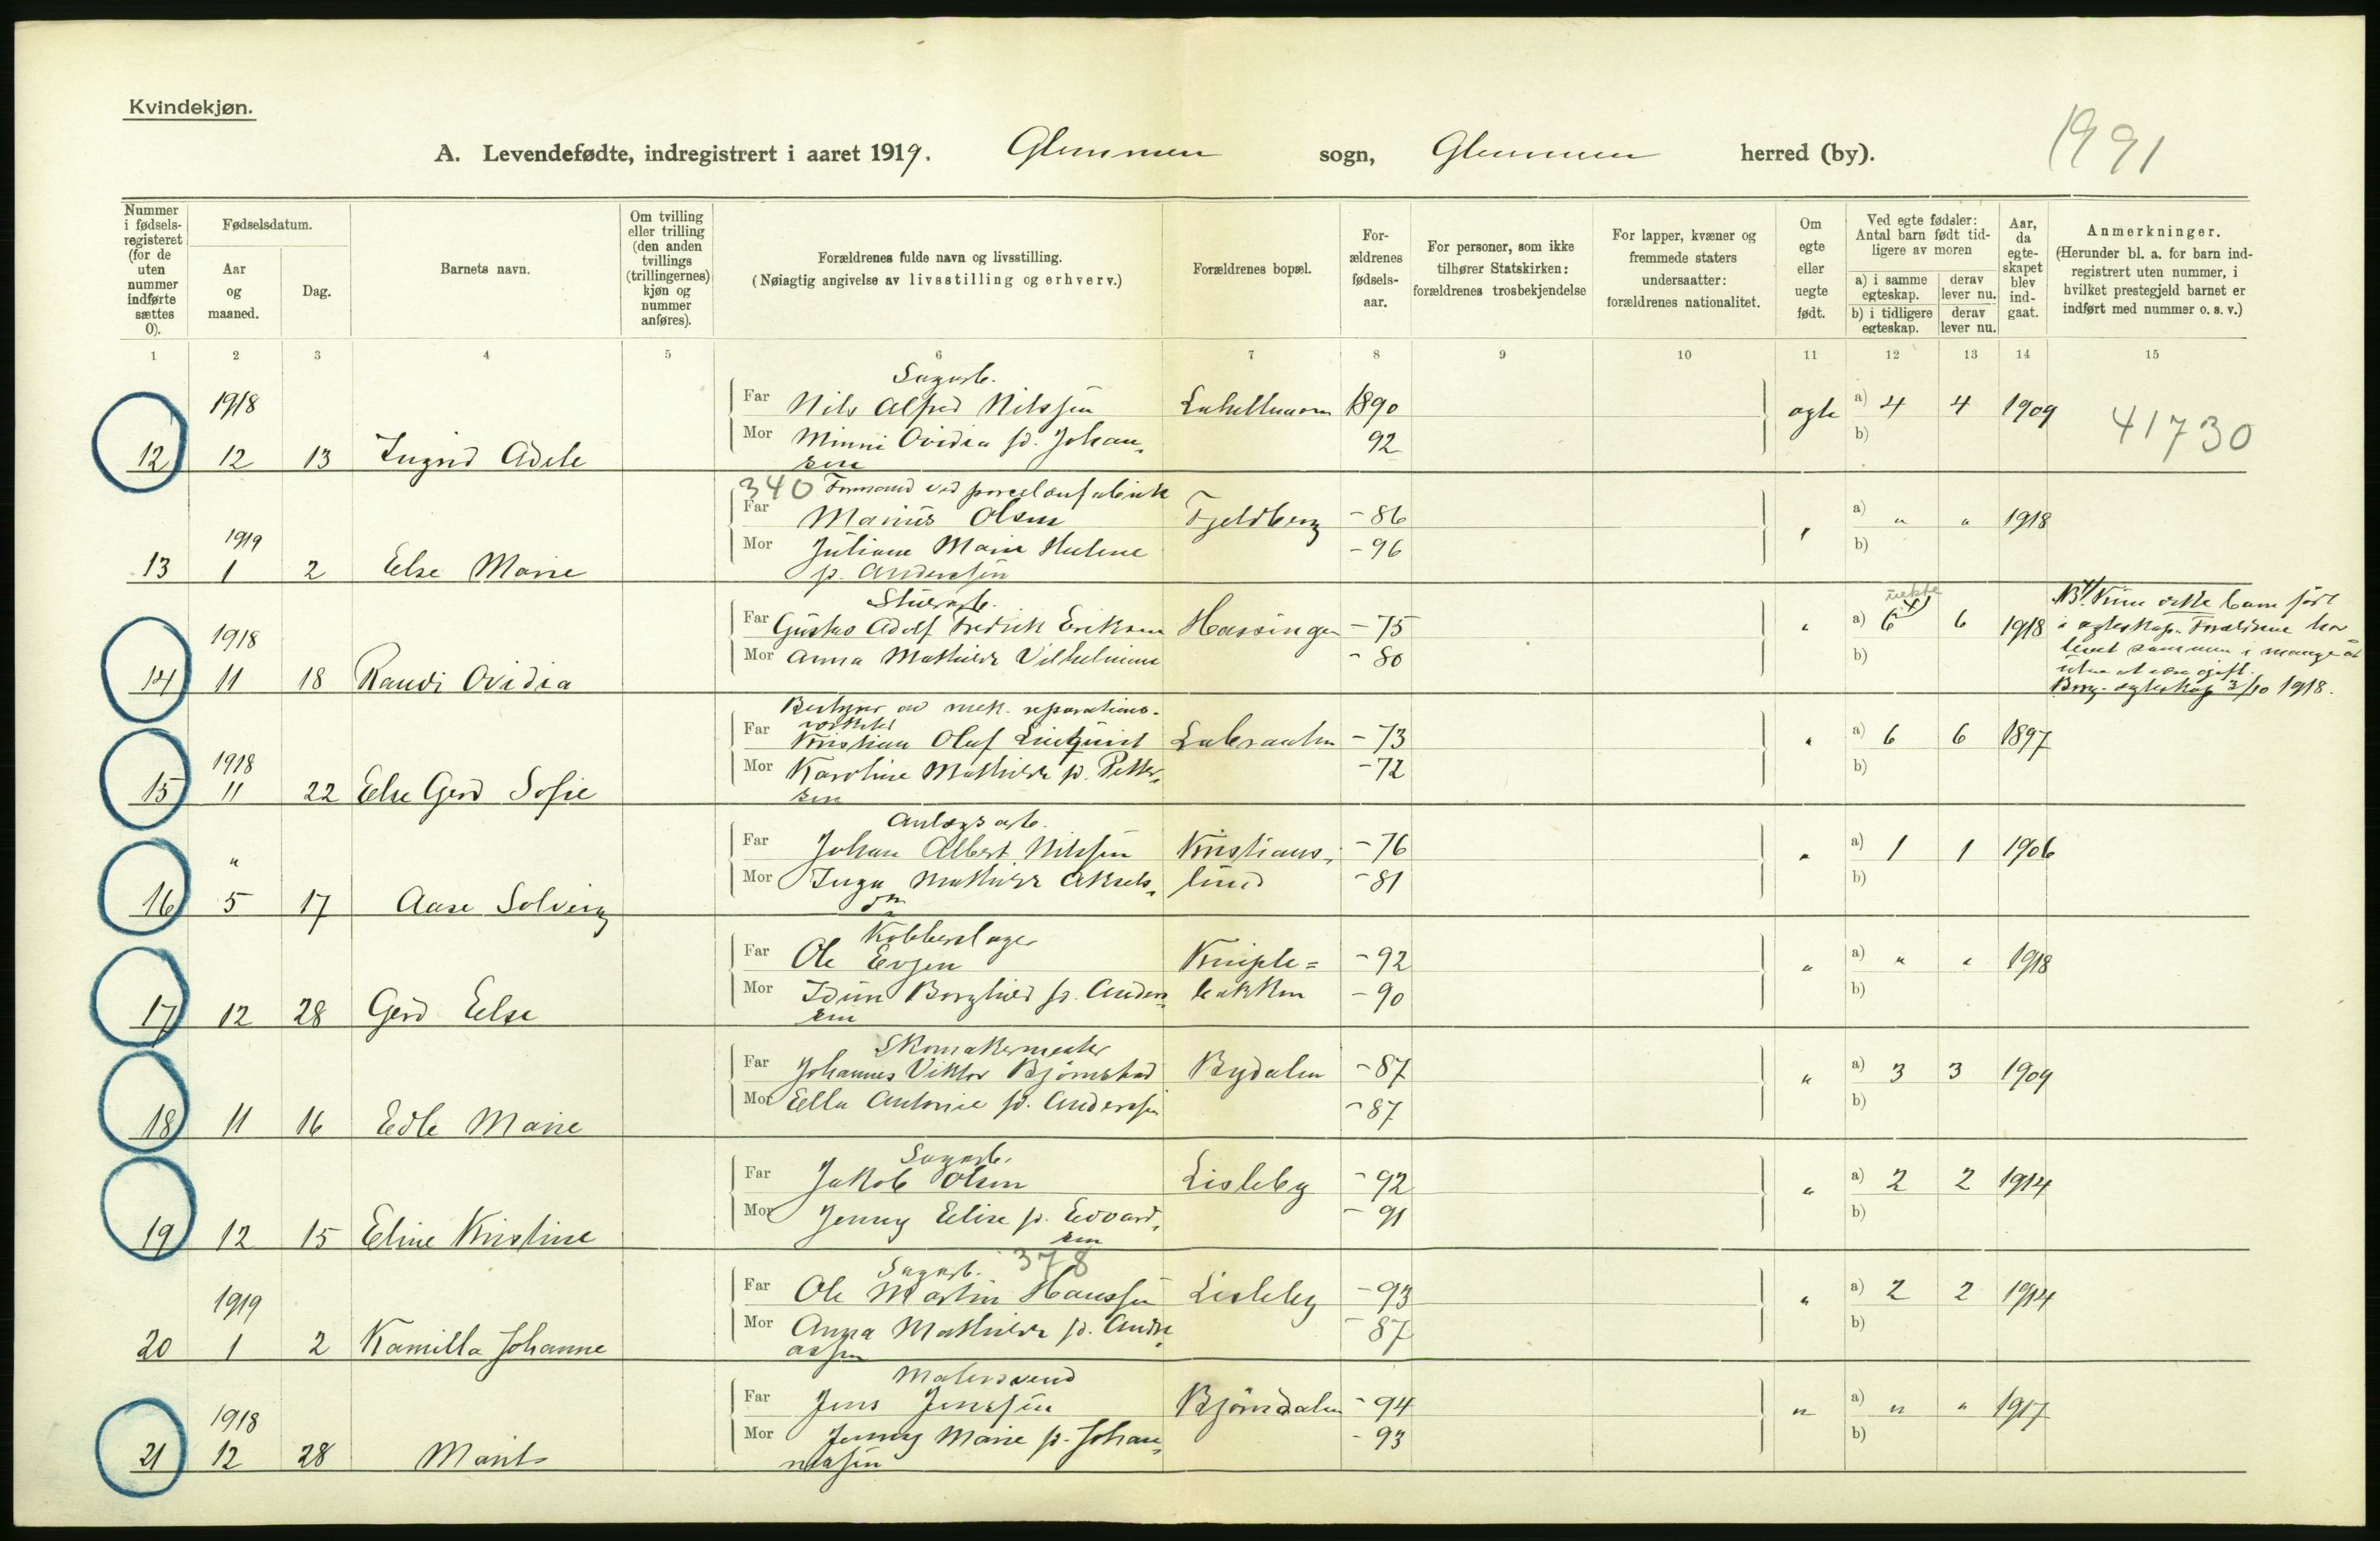 Kvindekjøn.
A. Levendefødte, indregistrert i aaret 1919. Glemmen sogn, Glemmen herred (by). 1991
Nummer i fødsels-registeret (for de uten nummer indførte sættes 0).
Fødselsdatum.
Aar og maaned.
Dag.
Barnets navn.
Om tvilling eller trilling (den anden tvillings (trillingernes) kjøn og nummer anføres).
Forældrenes fulde navn og livsstilling.
(Nøiagtig angivelse av livsstilling og erhverv.)
Forældrenes bopæl.
For-ældrenes fødsels-aar.
For personer, som ikke tilhører Statskirken: forældrenes trosbekjendelse
For lapper, kvæner og fremmede staters undersaatter: forældrenes nationalitet.
Om egte eller uegte født.
Ved egte fødsler: Antal barn født tid-ligere av moren
a) i samme egteskap. derav lever nu.
b) i tidligere egteskap. derav lever nu.
Aar, da egte-skapet blev ind-gaat.
Anmerkninger.
(Herunder bl. a. for barn ind-registrert uten nummer, i hvilket prestegjeld barnet er indført med nummer o. s. v.)
1 2 3 4 5 6 7 8 9 10 11 12 13 14 15
Sagarb.
1918 Far Nils Alfred Nilssen 1890 a) 4 4 1909 41730
Mor Minni Ovidia f. Johan- 92 b)
12 12 13 Ingrid Adele sen
340 Formand ved porcelænsfabrik
Far Marius Olsen Fjeldberg -86 a) " " 1918
1919 Mor Juliane Marie Helene -96 b)
13 1 2 Else Marie f. Anderssen
Stuerarb. uekte NB! Nim ække barn født
Far Gustav Adolf Fredrik Eriksen Hassingen -75 " a) 6 6 1918 i ægteskap. Forældrene har
1918 Mor Anna Mathilde Vilhelmine -80 b) levet sammen i mange aar
14 11 18 Randi Ovidia uten at være gift.
Borg. ægteskap 3/10 1918.
Bestyrer av mek. reparations-
verksted
Far Kristian Oluf Lindquist Labraaten -73 " a) 6 6 1897
1918 Mor Karoline Mathilde f. Petter- -72 b)
15 11 22 Else Gerd Sofie sen
Anlægsarb.
Far Johan Albert Nilssen Kristians- -76 " a) 1 1 1906
" Mor Inga Mathilde Aksels- lund -81 b)
16 5 17 Aase Solveig
Kobberslager
Far Ole Evjen Kniple= -92 " a) " " 1918
Mor Idun Borghild f. Anders- bakken -90 b)
17 12 28 Gerd Else sen
Skomakermester
Far Johannes Viktor Bjørnstad Bydalen -87 " a) 3 3 1909
Mor Ella Antonie f. Anderssen -87 b)
18 11 16 Edle Marie
Sagarb.
Far Jakob Olsen Lisleby -92 " a) 2 2 1914
Mor Jenny Elise f. Edvard- -91 b)
19 12 15 Eline Kristine sen
Sagarb. 378
Far Ole Martin Hanssen Lisleby -93 " a) 2 2 1914
1919 Mor Anna Mathilde f. Andre- -87 b)
20 1 2 Kamilla Johanne assen
Malersvend
Far Jens Jenssen Bjørndalen -94 " a) " " 1917
1918 Mor Jenny Marie f. Johan- -93 b)
21 12 28 Marit nessen